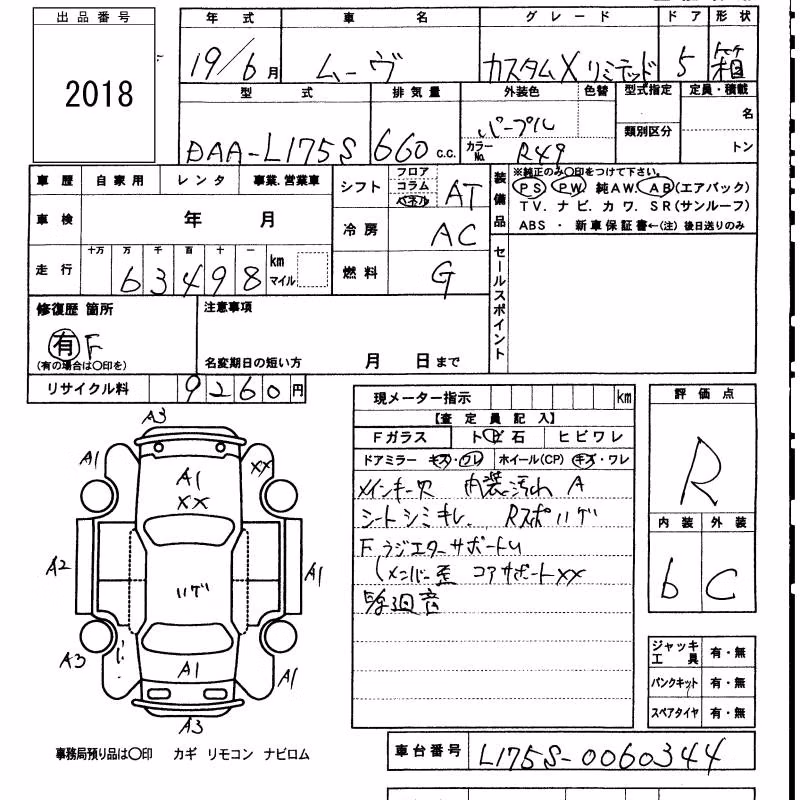 出品番号
2018
年式 車名 グレード ドア 形状
19/6月 ムーヴ カスタムX リミテッド 5 箱
型式 排気量 外装色 色替 型式指定 定員・積載
DAA-L175S 660 c.c. パープル 類別区分 名
カラーNo. R49 トン
車歴 自家用 レンタ 事業、営業車
シフト フロア コラム パネル AT
装備品 ※純正のみ○印をつけて下さい。
PS PW 純AW. AB (エアバック)
TV. ナビ. カワ. SR (サンルーフ)
ABS ・ 新車保証書←(注) 後日送りのみ
車検 年 月
冷房 AC
走行 十万 万 千 百 十 一
63498 km マイル
燃料 G
セールスポイント
修復歴 箇所
有 F
(有の場合は○印を)
注意事項
名変期日の短い方 月 日まで
リサイクル料 9260円
現メーター指示 km
【査定員記入】
Fガラス トビ石 ヒビワレ
ドアミラー キズ・ワレ ホイール(CP) キズ・ワレ
メインキー欠 内装汚れ A
シートシミキレ Rスポハゲ
F ラジエターサポートU
メンバー歪 コアサポートXX
評価点
R
内装 外装
b C
A3
A1 XX
A1
XX
A2 ハゲ A1
A3 A1 A1
A3
ジャッキ工具 有・無
パンクキット 有・無
スペアタイヤ 有・無
事務局預り品は○印 カギ リモコン ナビロム
車台番号 L175S-0060344